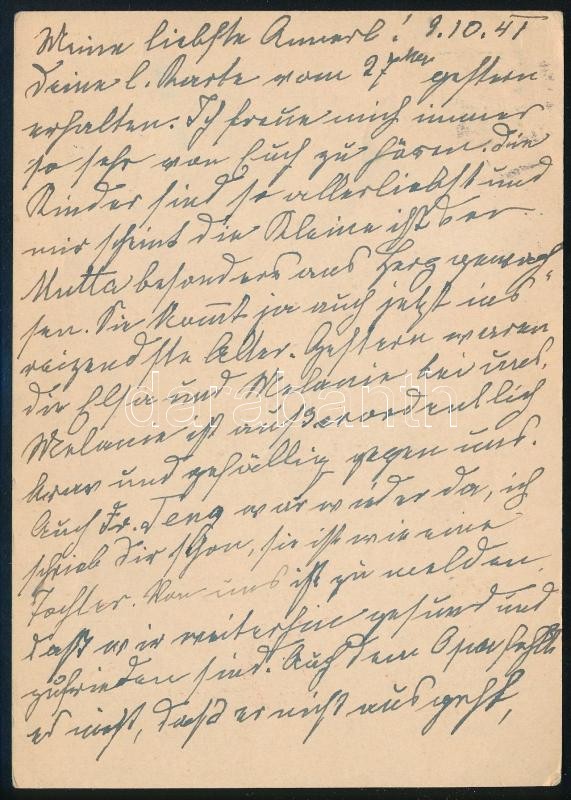 Meine liebste Annerl! 9.10.41
Deine l. Karte vom 27ten gestern
erhalten. Ich freue mich immer
so sehr von Euch zu hören. Die
Kinder sind so allerliebst und
mir scheint die Kleine ist der
Mutta besonders ans Herz gewach
sen. Sie kommt ja auch jetzt ins
reizendste Alter. Gestern waren
die Elsa und Melanie bei uns.
Melanie ist außerordentlich
brav und gefällig gegen uns.
Auch Fr. war wieder da, ich
schrieb Dir schon, sie ist wie eine
Tochter. Von uns ist zu melden,
daß wir weiterhin gesund und
zufrieden sind. Auch dem Opa fehlt
es nicht, daß er nicht ausgeht,
darabanth